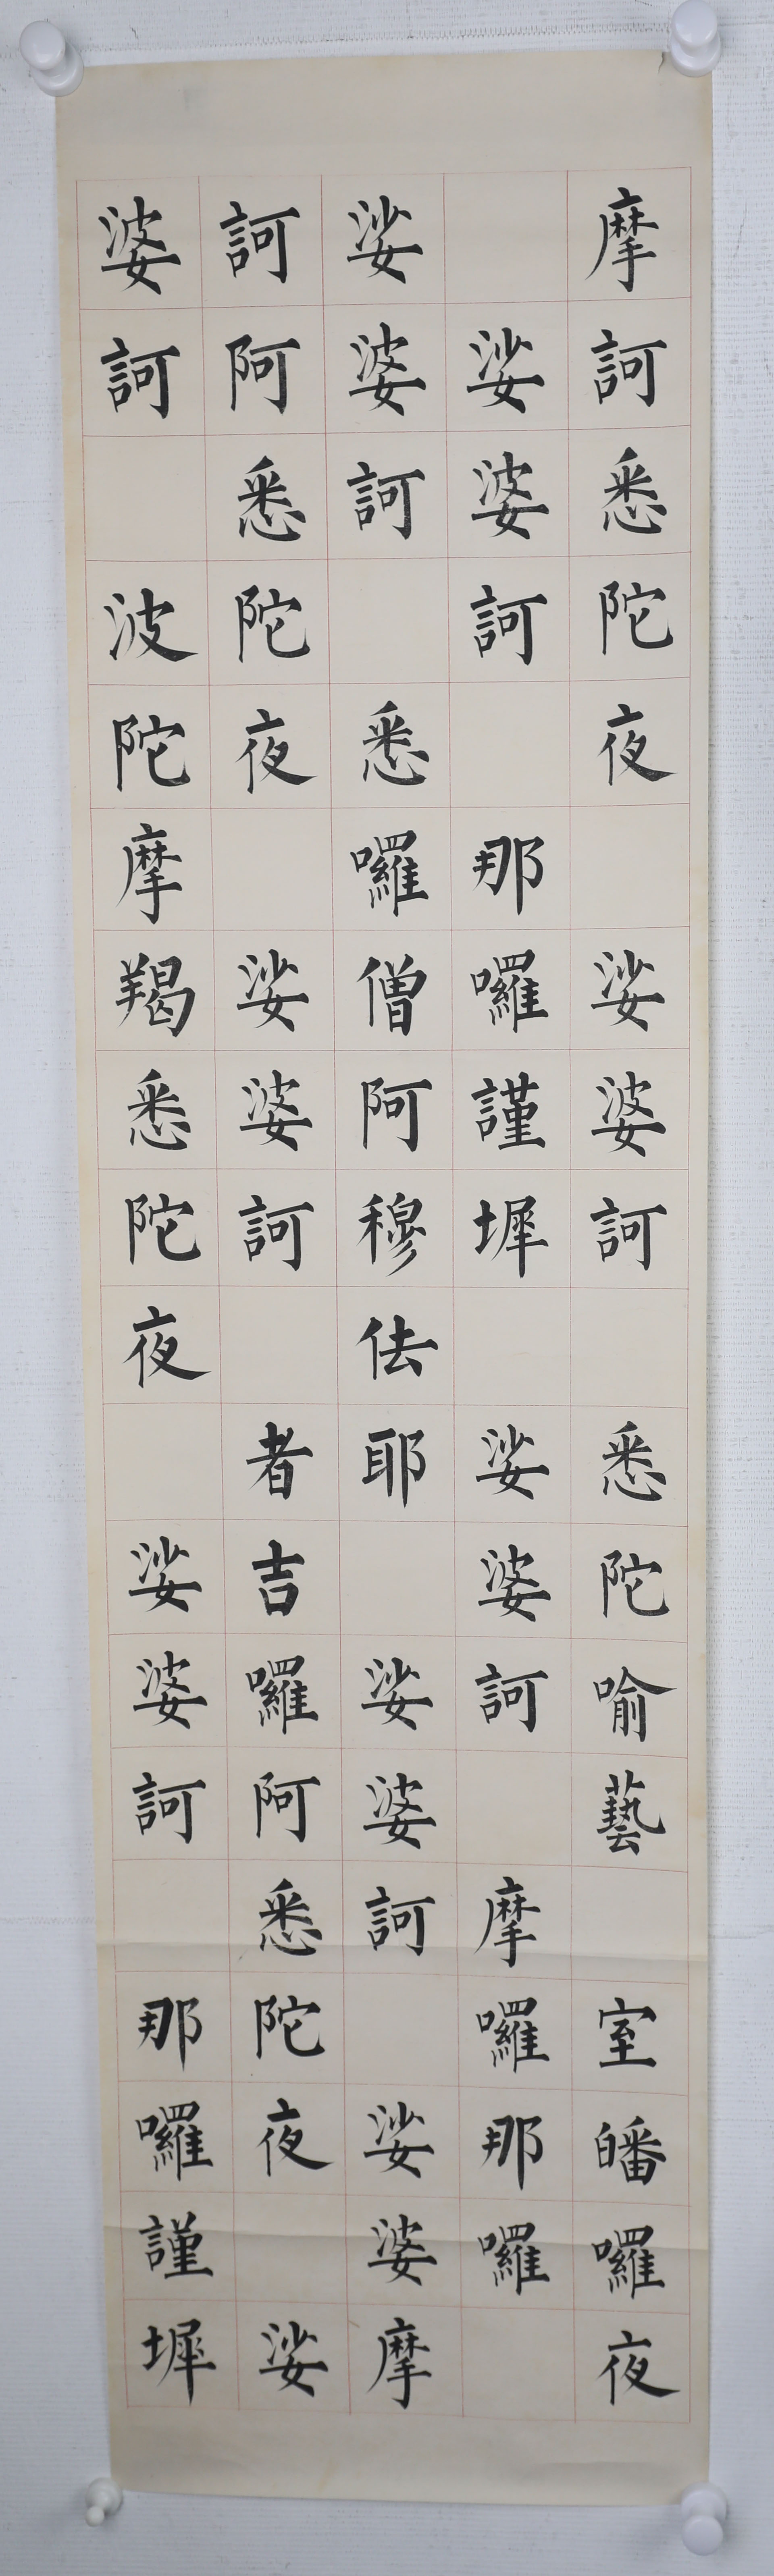 摩訶悉陀夜　娑婆訶　悉陀喻藝　室皤囉夜
　娑婆訶　那囉謹墀　娑婆訶　摩囉那囉
娑婆訶　悉囉僧阿穆佉耶　娑婆訶　娑婆摩
訶阿悉陀夜　娑婆訶　者吉囉阿悉陀夜　娑
婆訶　波陀摩羯悉陀夜　娑婆訶　那囉謹墀